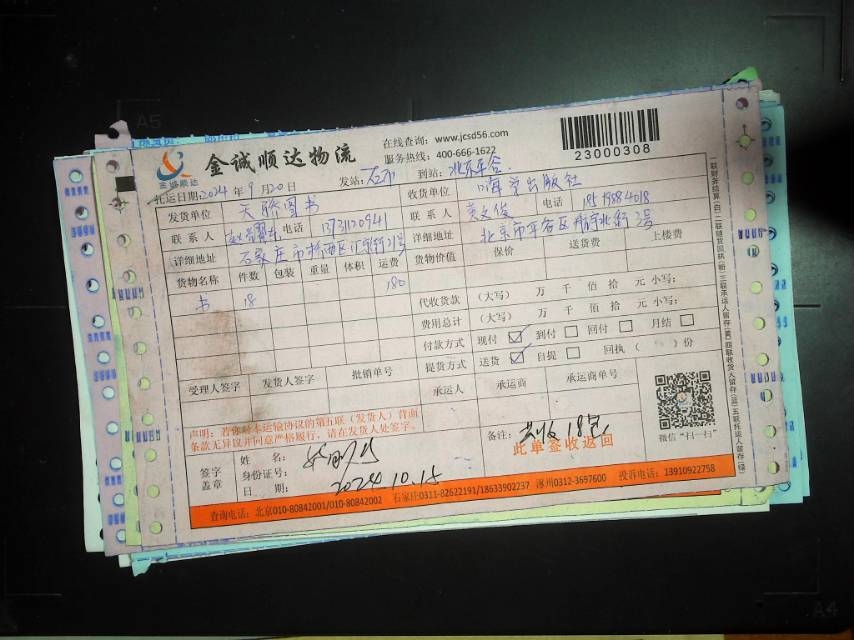 A5
金诚顺达物流
金诚顺达
在线查询：www.jcsd56.com
服务热线：400-666-1622
23000308
托运日期：2024 年 9 月 20 日 发站：石家 到站：北京平谷
发货单位 天骄图书 收货单位 出版社
联系人 电话 联系人 黄文俊 电话
详细地址 石家庄市桥西区 21号 详细地址 北京市平谷区 北街 3号
货物名称 件数 包装 重量 体积 运费 货物价值 保价 送货费 上楼费
书 18 180
代收货款 （大写） 万 千 佰 拾 元 小写：
费用总计 （大写） 万 千 佰 拾 元 小写：
付款方式 现付 ☑ 到付 □ 回付 □ 月结 □
提货方式 送货 ☑ 自提 □ 回执（ ）份
受理人签字 发货人签字 批销单号 承运人 承运商 承运商单号
声明：若你对本运输协议的第五联（发货人）背面
条款无异议并同意严格履行，请在发货人处签字。
备注：共收18包
此单签收返回
微信“扫一扫”
签字 盖章
姓 名：
身份证号：
日 期：2024.10.15
查询电话：北京010-80842001/010-80842002 石家庄0311-82622191/18633902237 涿州0312-3697600 投诉电话：13910922758
A4